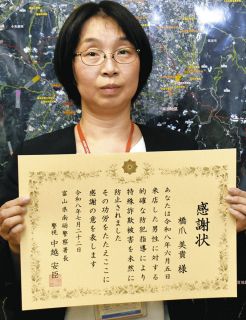 感謝状
橋爪 美貴 様
あなたは令和八年六月五日
来店した男性に対する
的確な防犯指導により
特殊詐欺被害を未然に
防止されました
その功労をたたえここに
感謝の意を表します
令和八年七月二十二日
富山県南砺警察署長
警視 中越 安臣